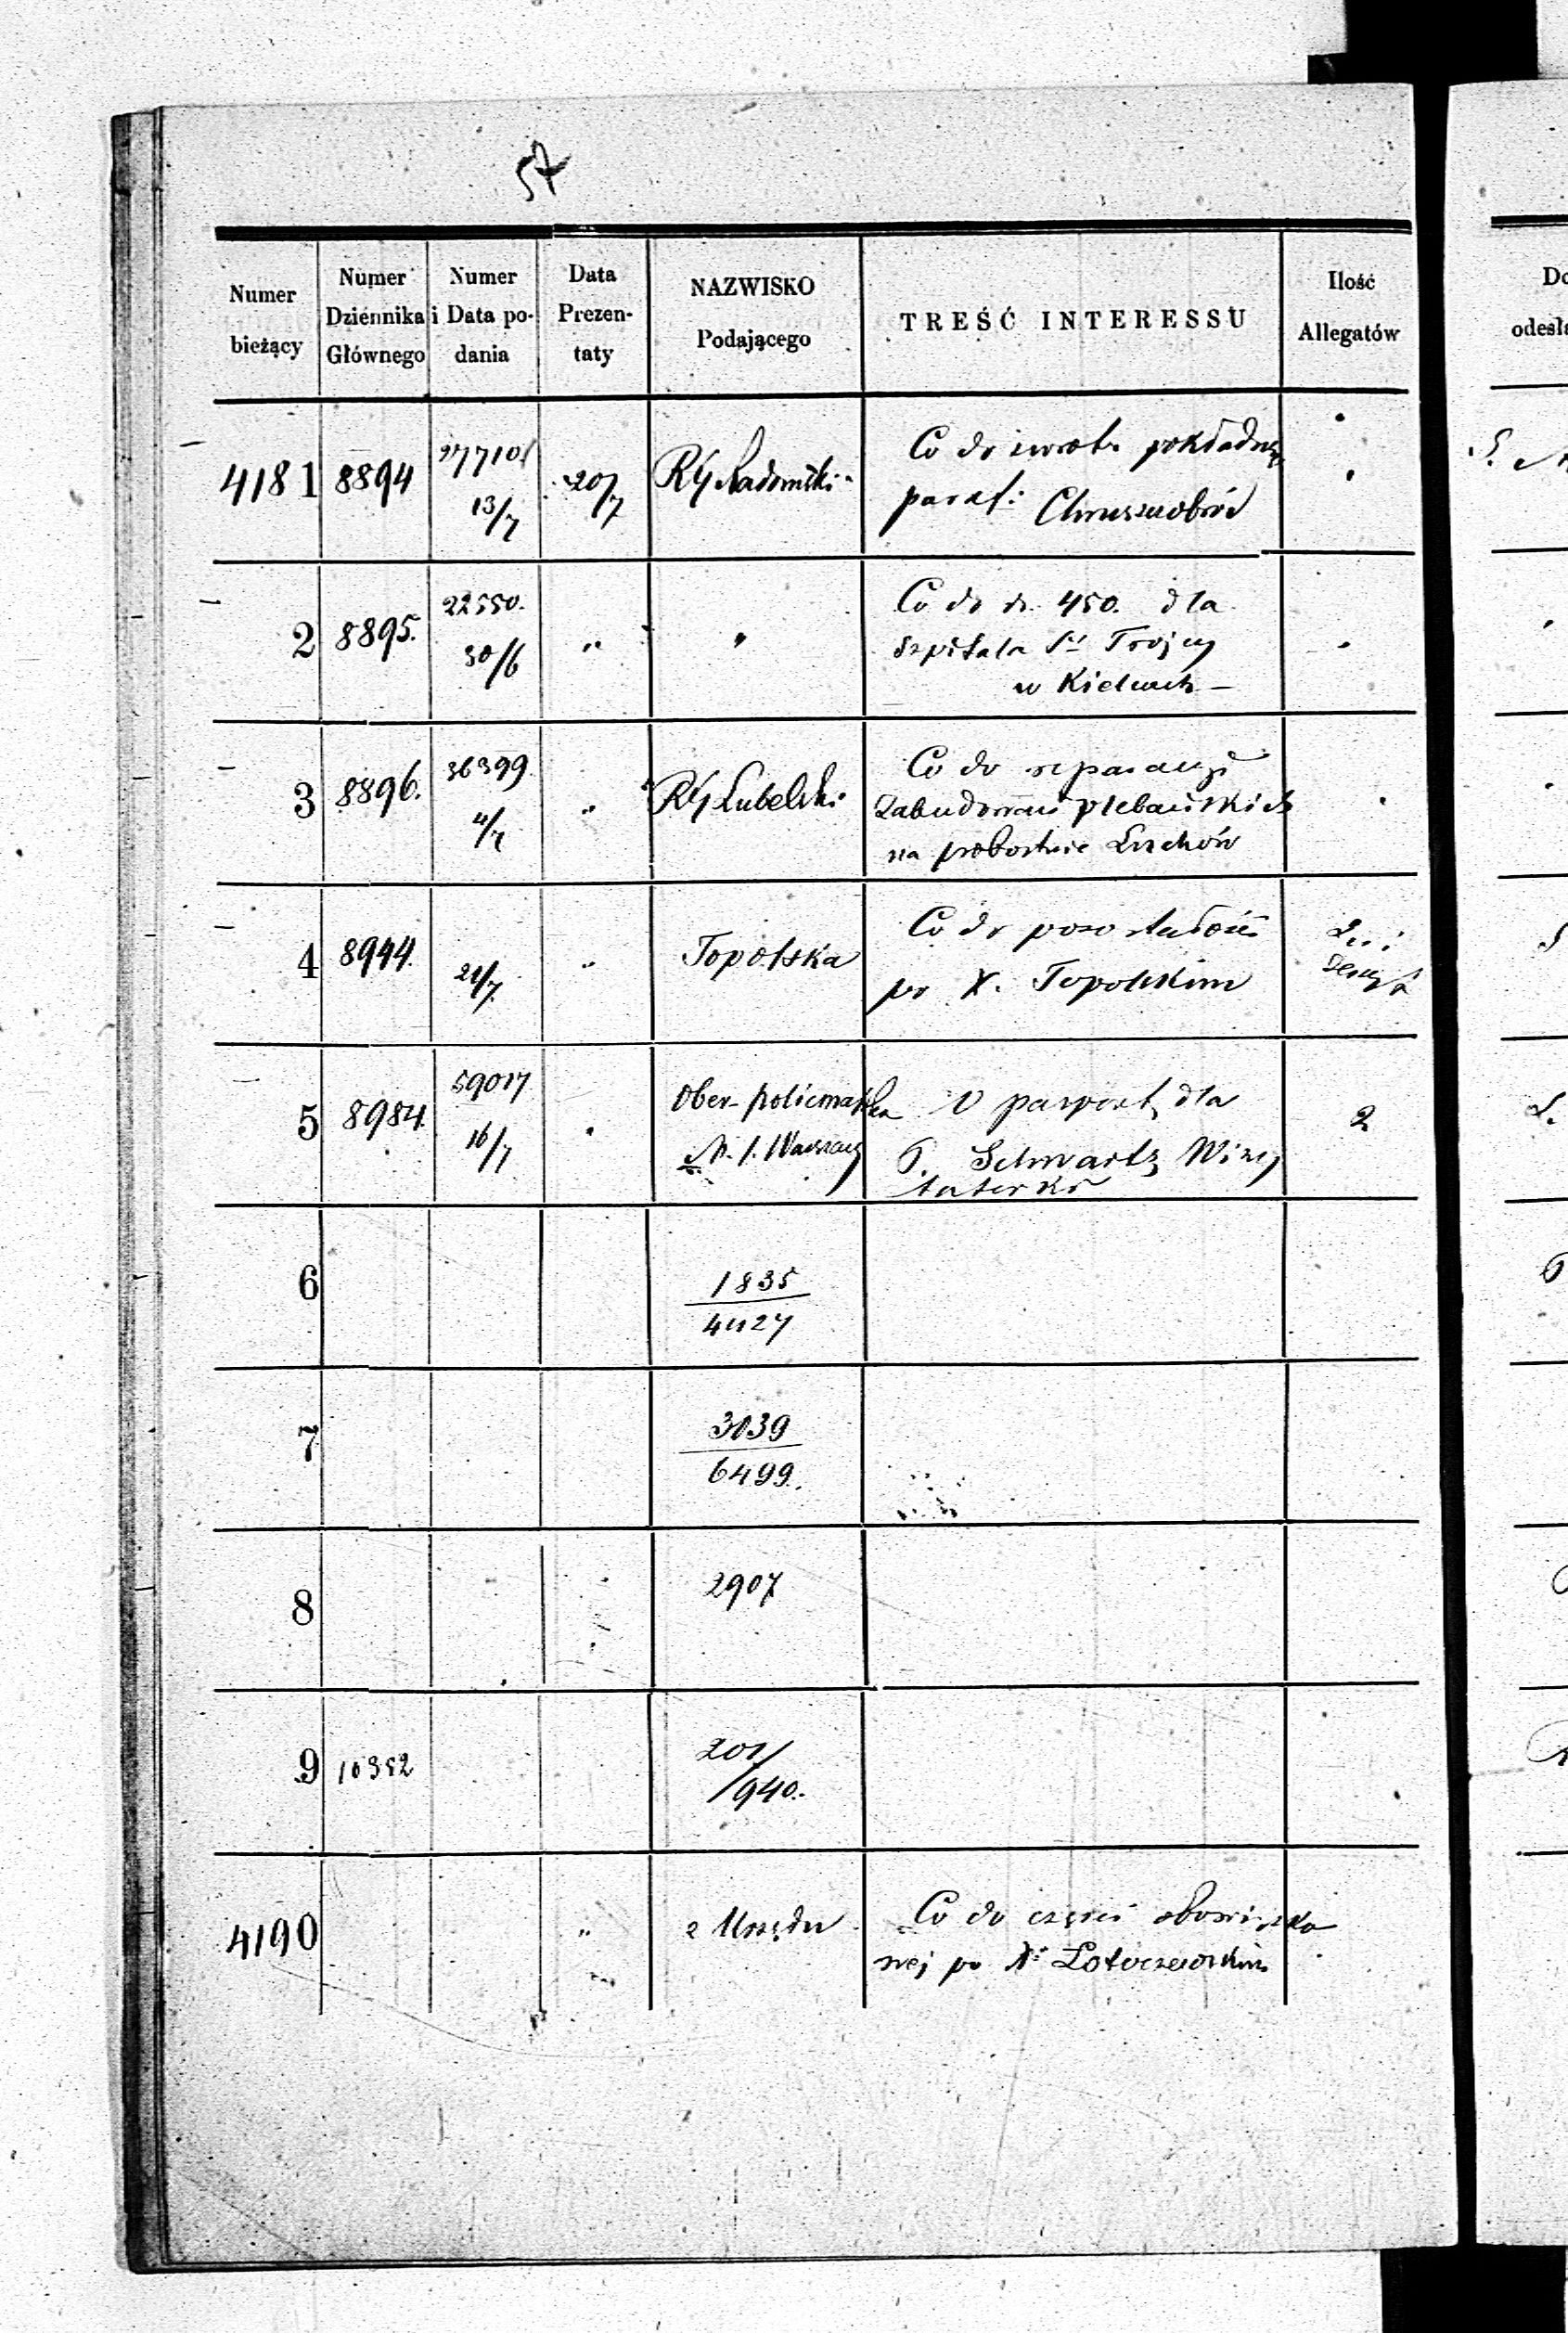 57
Numer bieżący
Numer Dziennika Głównego
Numer i Data podania
Data Prezentaty
NAZWISKO Podającego
TREŚĆ INTERESSU
Ilość Allegatów
4181 8894 27710 13/7 20/7 RG Radomski Co do zwrotu pokładnego
paraf: Chruszczobród
2 8895. 22550. 30/6 " " Co do rs. 450. dla
Szpitala Św. Trójcy
w Kielcach –
3 8896. 36399 4/7 " RG Lubelski Co do reparacyi
Zabudowań plebańskich
na probostwie
4 8944. 21/7 " Topolska Co do pozostałości
po X. Topolskim
5 8984. 59017 16/7 Ober-policmajster O paszport dla 2
M. S. Warszawy P. Schwartz Wizy
6 1835
4427
7 3039
6499.
8 2907
9 10352 201/940.
4190 " z Urzędu Co do części obowiązko
wej po